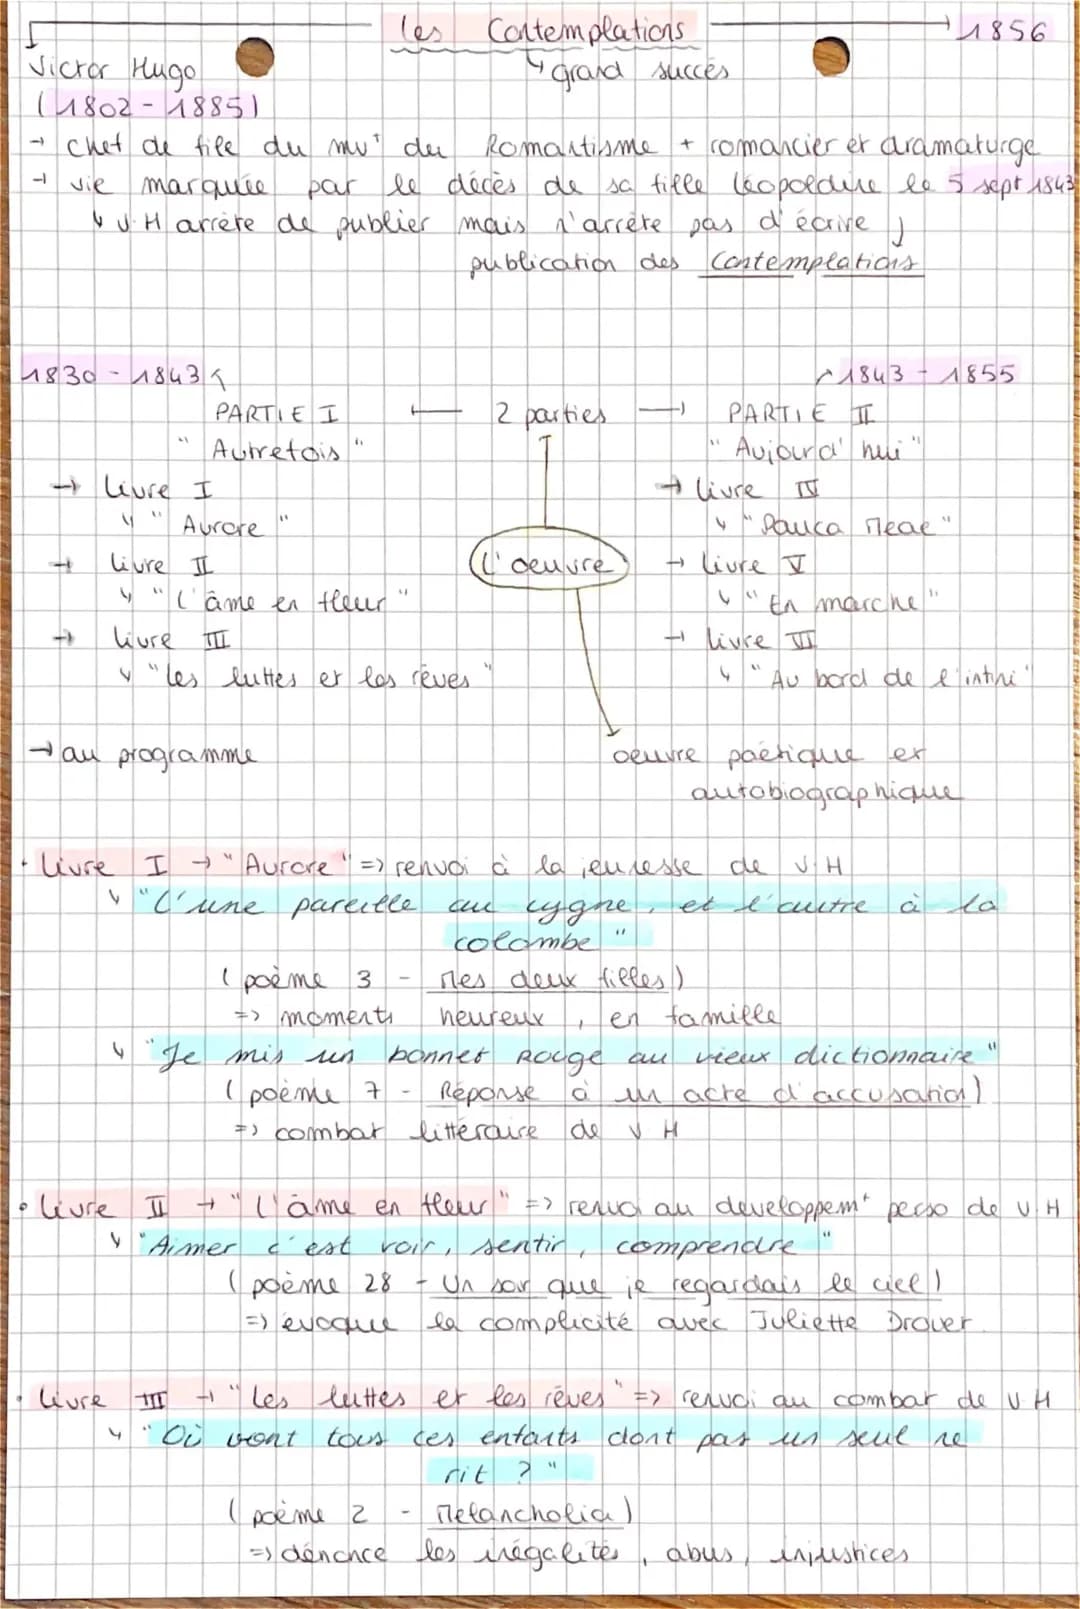 Les Contemplations → 1856
↳ grand succès
Victor Hugo
(1802 - 1885)
→ chef de file du mvt du Romantisme + romancier et dramaturge
→ vie marquée par le décès de sa fille Léopoldine le 5 sept 1843
↳ V.H arrête de publier mais n'arrête pas d'écrire ↓
publication des Contemplations
1830 - 1843
1843 - 1855
PARTIE I ← 2 parties → PARTIE II
"Autrefois"
"Aujourd'hui"
→ Livre I
↳ "Aurore"
→ Livre II
↳ "L'âme en fleur"
→ Livre III
↳ "Les luttes et les rêves"
→ Livre IV
↳ "Pauca Meae"
→ Livre V
↳ "En marche"
→ Livre VI
↳ "Au bord de l'infini"
L'oeuvre
→ au programme
oeuvre poétique et
autobiographique
• Livre I → "Aurore" => renvoi à la jeunesse de V.H
↳ "L'une pareille au cygne, et l'autre à la
colombe"
(poème 3 - Mes deux filles)
=> moments heureux, en famille
↳ "Je mis un bonnet rouge au vieux dictionnaire"
(poème 7 - Réponse à un acte d'accusation)
=> combat littéraire de V.H
• Livre II → "L'âme en fleur" => renvoi au developpemt perso de V.H
↳ "Aimer c'est voir, sentir, comprendre"
(poème 28 - Un soir que je regardais le ciel)
=> évoque la complicité avec Juliette Drouet.
• Livre III → "Les luttes et les rêves" => renvoi au combat de V.H
↳ "Où vont tous ces enfants dont pas un seul ne
rit ?"
(poème 2 - Melancholia)
=> dénonce les inégalités, abus, injustices